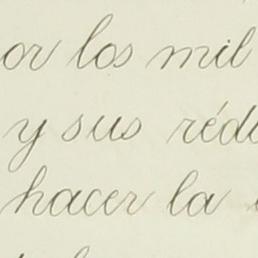 or los mil
y sus rédi
hacer la